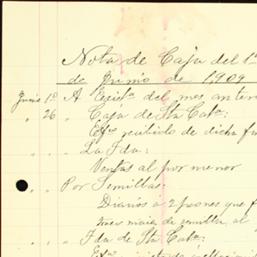 Nota de Caja del 1º
de Junio de 1,909
Junio 1º A Exist.ª del mes anteri
" 26 " Caja de Sta Cat.ª:
Ef.º recibido de dicha f
" " La Fda:
Ventas al por menor
" Por Semillas:
Diarios a 2 peones que f
maiz de semilla, al
" " Fda de Sta Cat.ª: